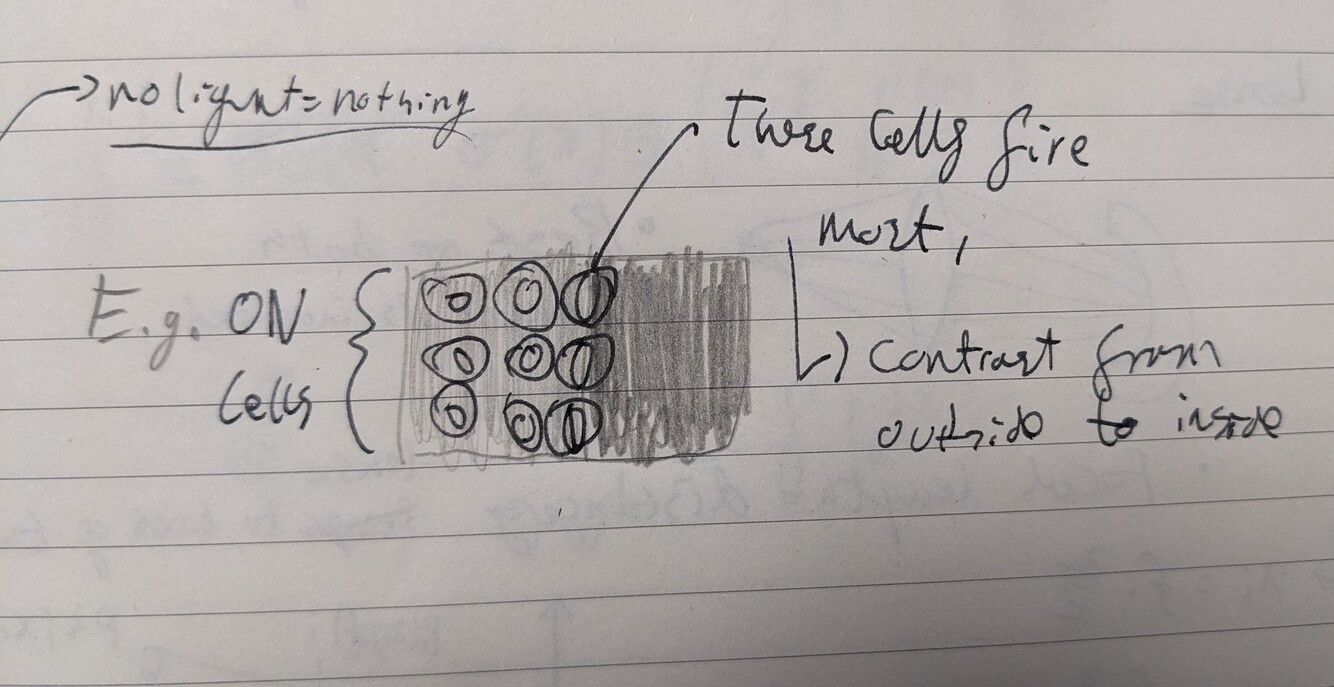 → no light = nothing
These cells fire
most,
E.g. ON
Cells
↳ Contrast from
outside to inside